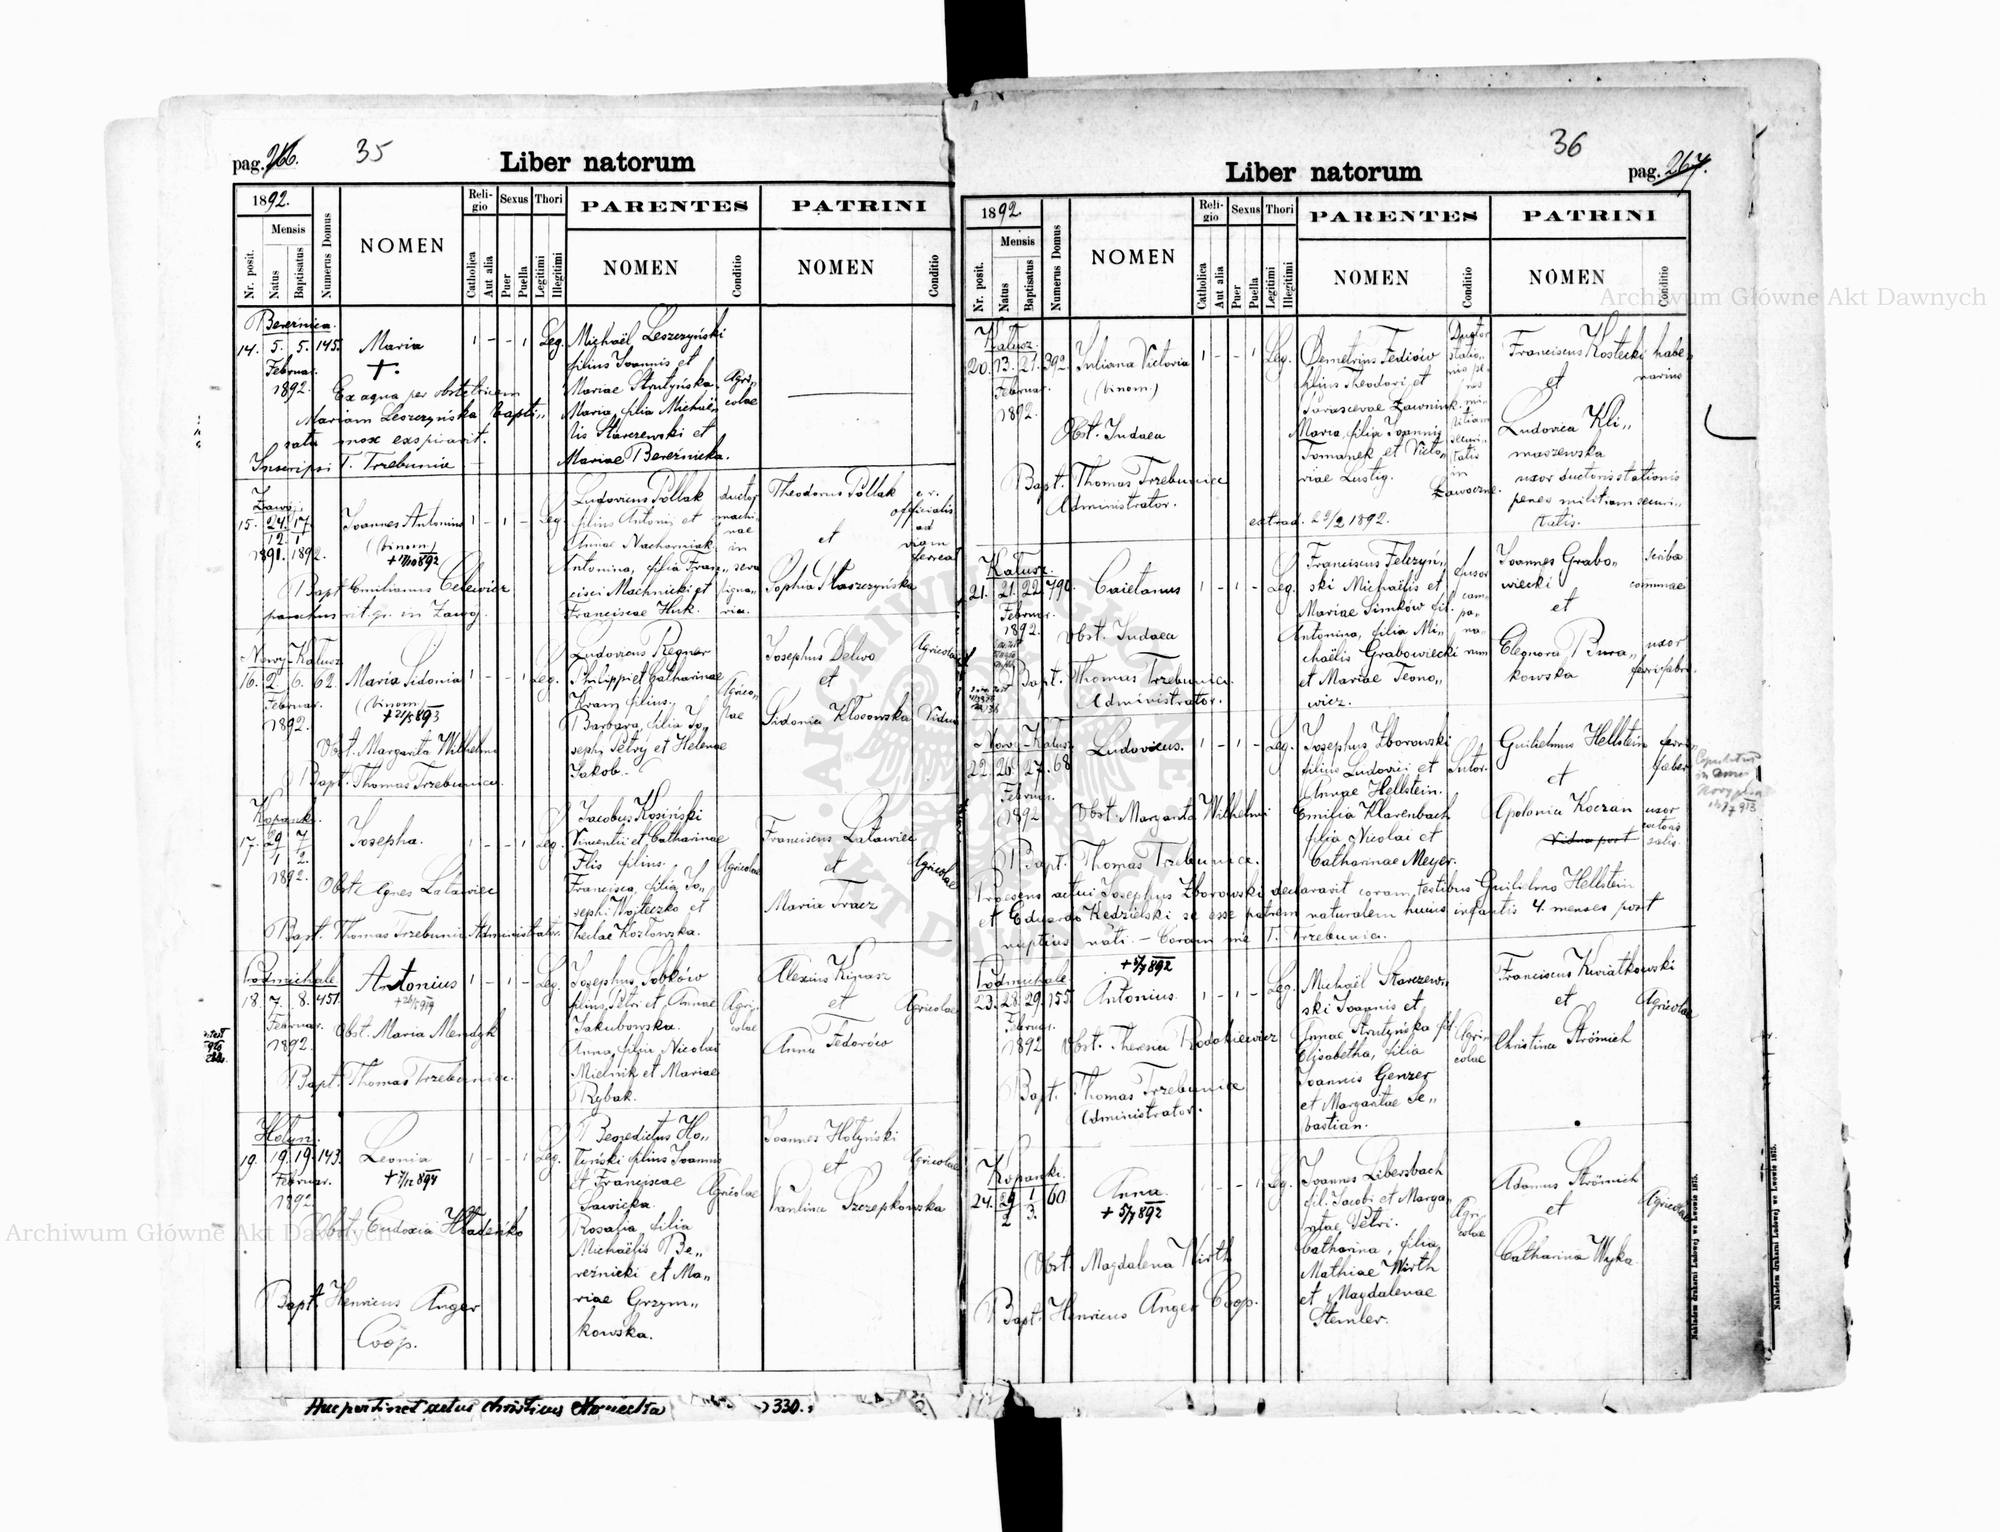 pag. 266.
35
Liber natorum
1892.
Nr. posit.
Mensis
Natus
Baptisatus
Numerus Domus
NOMEN
Religio
Catholica
Aut alia
Sexus
Puer
Puella
Thori
Legitimi
Illegitimi
PARENTES
NOMEN
Conditio
PATRINI
NOMEN
Conditio
Bereźnica.
14. 5. 5. 145. Maria 1 - - 1 Leg.
Februar.
1892.
Ex aqua per obstetricem
Mariam Leszczyńska bapti„
sata mox exspiravit.
Inscripsi T. Trzebunia
Michaël Leszczyński
filius Joannis et
Mariae Strutyńska.
Maria, filia Michaë„
lis Starczewski et
Mariae Bereźnicka.
Agri„
colae
Zawoj
15. 24. 17. Joannes Antonius 1 - 1 - Leg.
12. 1.
1891. 1892.
(binom)
Bapt. Emilianus Celewicz
parochus rit. gr. in Zawoj.
Ludovicus Pollak
filius Antonii et
Annae Nachorniak.
Antonina, filia Fran„
cisci Machnicki et
Franciscae Huk.
ductor
machi„
nae
in
serra
ligna„
ria.
Theodorus Pollak
et
Sophia Staszczyńska
c. r.
officialis
ad
viam
ferream
Nowy-Kalusz
16. 2. 6. 62. Maria Sidonia 1 - - 1 Leg.
Februar.
1892.
(binom)
Obst. Margareta Wilhelmi
Bapt. Thomas Trzebunia.
Ludovicus Regner
Philippi et Catharinae
Kram filius.
Barbara, filia Jo„
sephi Petry et Helenae
Jakob.
Agrico„
lae
Josephus Delwo
et
Sidonia Klosowska
Agricola
Vidua
Kopanki.
17. 29 7 Josepha. 1 - - 1 Leg.
1. 2.
1892.
Obst. Agnes Latawiec
Bapt. Thomas Trzebunia Administrator.
Jacobus Kosiński
Vincentii et Catharinae
Flis filius.
Francisca, filia Jo„
sephi Wojteczko et
Theclae Kozłowska.
Agricolae
Franciscus Latawiec
et
Maria Tracz
Agricolae
Podmichale
18. 7. 8. 451. Antonius 1 - 1 - Leg.
Februar.
1892.
Obst. Maria Mendyk
Bapt. Thomas Trzebunia.
Josephus Sobków
filius Petri et Annae
Jakubowska.
Anna, filia Nicolai
Mielnik et Mariae
Rybak.
Agri„
colae
Alexius Kinasz
et
Anna Fedorów
Agricolae
Hołyń.
19. 19. 19. 143. Leonia 1 - - 1 Leg.
Februar.
1892
Obst. Eudoxia Hładeńko
Bapt. Henricus Anger
Coop.
Benedictus Ho„
łyński filius Joannis
et Franciscae
Sawicka.
Rosalia filia
Michaëlis Be„
reźnicki et Ma„
riae Grzym„
kowska.
Agricolae
Joannes Hołyński
et
Paulina Szczepkowska
Agricolae
330.
36
Liber natorum
pag. 267.
1892.
Nr. posit.
Mensis
Natus
Baptisatus
Numerus Domus
NOMEN
Religio
Catholica
Aut alia
Sexus
Puer
Puella
Thori
Legitimi
Illegitimi
PARENTES
NOMEN
Conditio
PATRINI
NOMEN
Conditio
Kalusz.
20. 13. 21. 392. Juliana Victoria 1 - - 1 Leg.
Februar.
1892.
(binom.)
Obst. Judaea
Bapt. Thomas Trzebunia
Administrator.
Demetrius Fediów
filius Theodori et
Parascevae Ławniuk.
Maria, filia Joannis
Tomanek et Victo„
riae Lustig.
extrad. 29/2 1892.
Ductor
statio„
nis pe„
nes
mi„
litiam
securi„
tatis
in
Ławoczne.
Franciscus Kostecki
et
Ludovica Kli„
maszewska
uxor ductoris stationis
penes militiam securi„
tatis.
Kalusz.
21. 21. 22. 790. Caietanus 1 - 1 - Leg.
Februar.
1892.
Obst. Judaea
Bapt. Thomas Trzebunia.
Administrator.
Franciscus Felczyń„
ski Michaëlis et
Mariae Simków fil.
Antonina, filia Mi„
chaëlis Grabowiecki
et Mariae Teono„
wicz.
fusor
cam„
pa„
na„
rum
Joannes Grabo„
wiecki
et
Eleonora Bura„
kowska
scriba
communae
uxor
ferrifabri
Nowy-Kalusz
22. 26. 27. 68 Ludovicus. 1 - 1 - Leg.
Februar.
1892
Obst. Margareta Wilhelmi
Bapt. Thomas Trzebunia.
Josephus Zborowski
filius Ludovici et
Annae Hellstein.
Emilia Klarenbach
filia Nicolai et
Catharinae Meyer.
Sutor.
Guilielmus Hellstein
et
Apolonia Koczan
Vidua post
ferri„
faber
uxor
coctoris
salis.
Praesens actui Josephus Zborowski declaravit coram testibus Guilielmo Hellstein
et Eduardo Kedzielski se esse patrem naturalem huius infantis 4. menses post
nuptias nati. - Coram me T. Trzebunia.
Podmichale
23. 28. 29. 155. Antonius. 1 - 1 - Leg.
Februar.
1892
Obst. Theresia Rodakiewicz
Bapt. Thomas Trzebunia
Administrator.
Michaël Starczew„
ski Joannis et
Annae Strutyńska fil.
Elisabetha, filia
Joannis Genzer
et Margaretae Se„
bastian.
Agri„
colae
Franciscus Kwiatkowski
et
Christina Strömich
Agricolae
Kopanki.
24. 29 1 60 Anna. 1 - - 1 Leg.
2 3.
Obst. Magdalena Wirth
Bapt. Henricus Anger Coop.
Joannes Libersbach
fil. Jacobi et Marga„
retae Petri.
Catharina, filia
Mathiae Wirth
et Magdalenae
Stemler.
Agri„
colae
Adamus Strömich
et
Catharina Wyka
Agricolae
Nakładem drukarni Ludowej we Lwowie 1875.
Nakładem drukarni Ludowej we Lwowie 1875.
Archiwum Główne Akt Dawnych
Archiwum Główne Akt Dawnych
ARCHIWUM GŁÓWNE AKT DAWNYCH